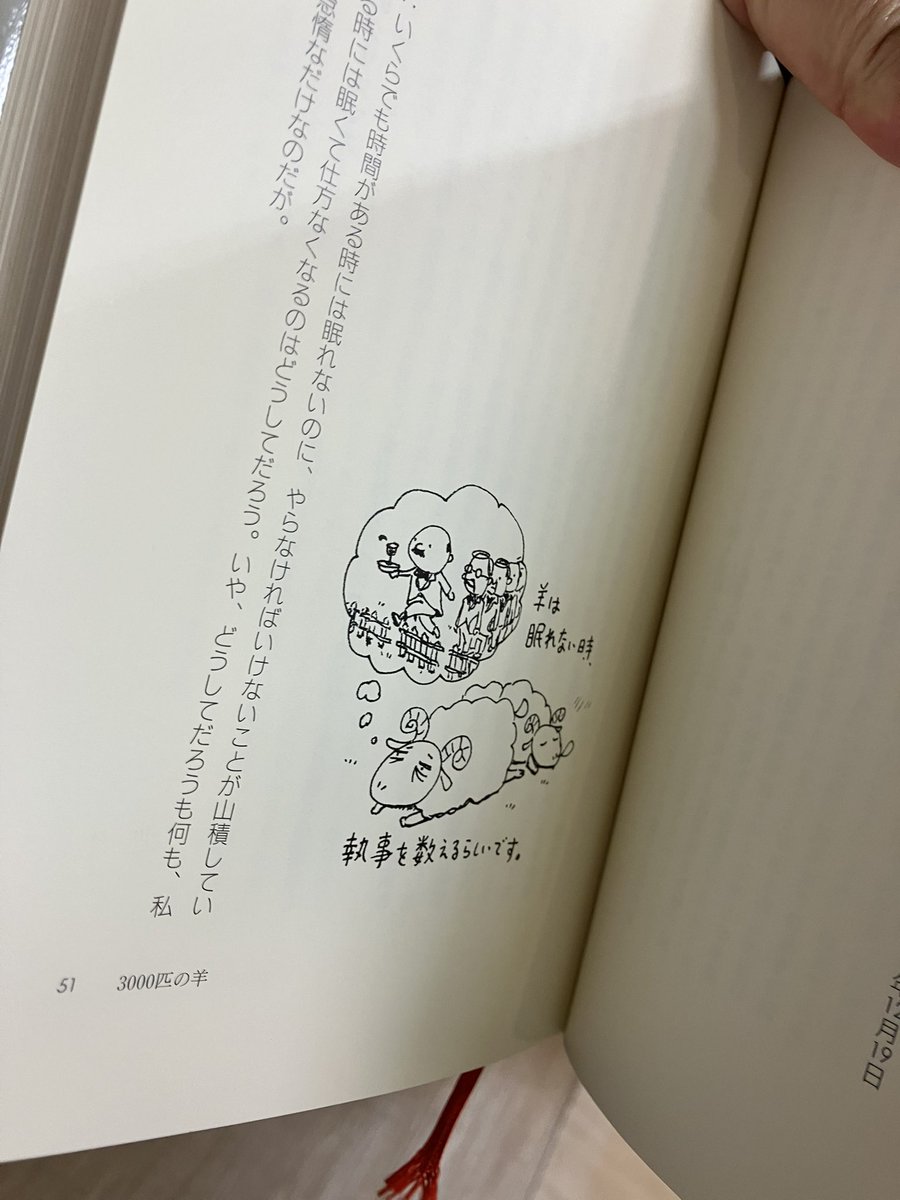 いくらでも時間がある時には眠れないのに、やらなければいけないことが山積してい
る時には眠くて仕方なくなるのはどうしてだろう。いや、どうしてだろうも何も、私
惰なだけなのだが。
羊は
眠れない時、
執事を数えるらしいです。
51 3000匹の羊
月19日